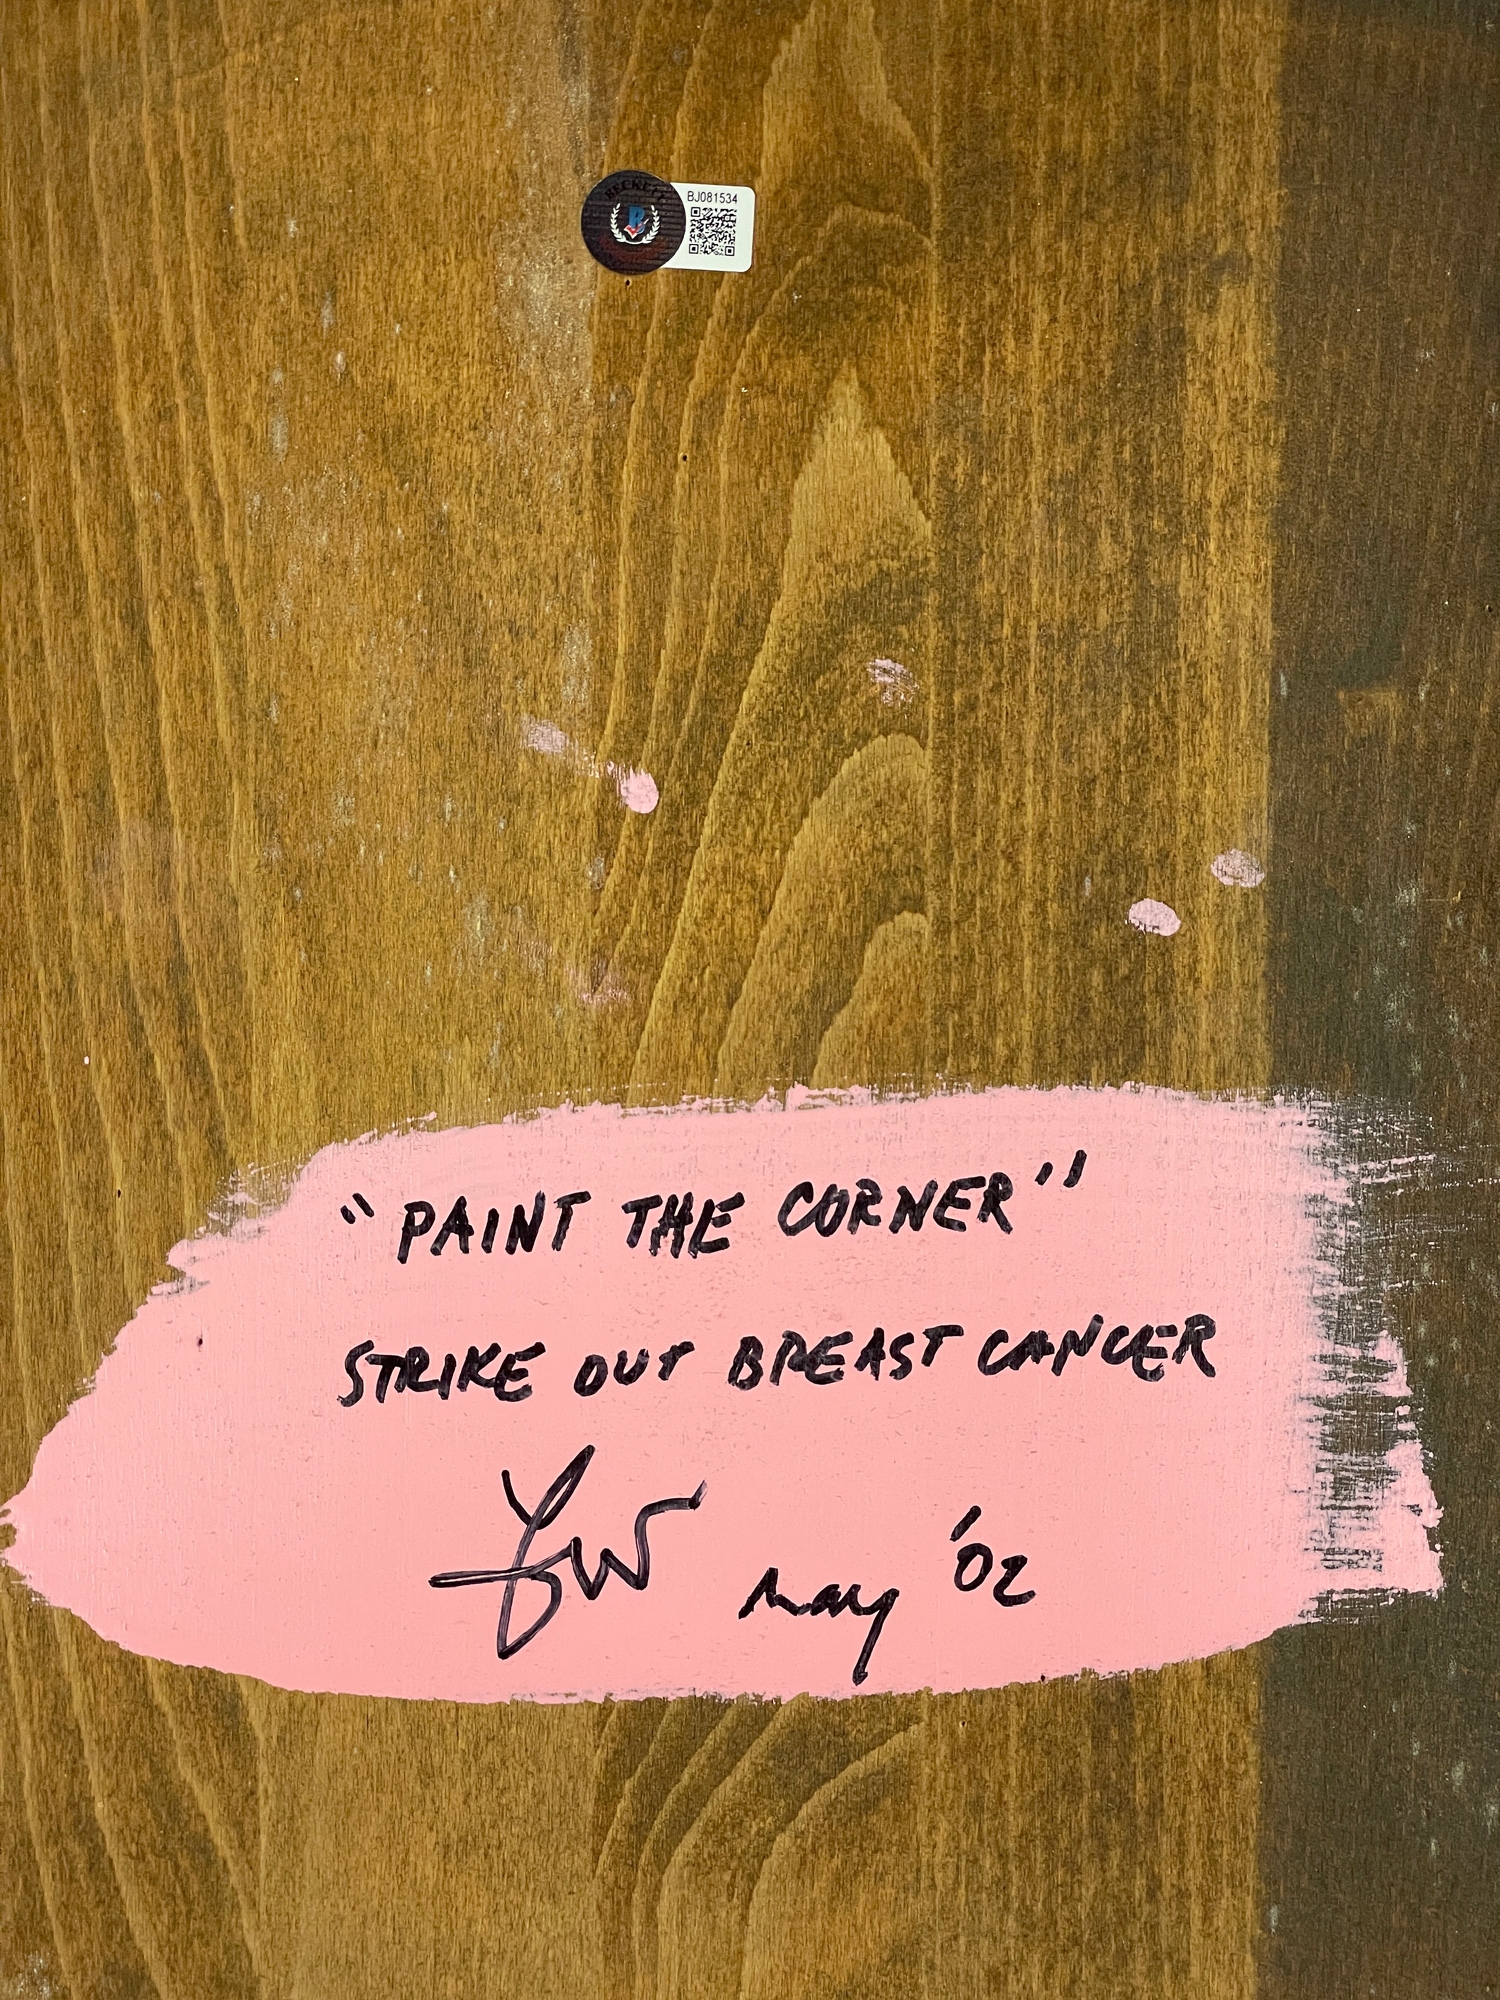 BECKETT
BJ081534
"PAINT THE CORNER"
STRIKE OUT BREAST CANCER
May '02